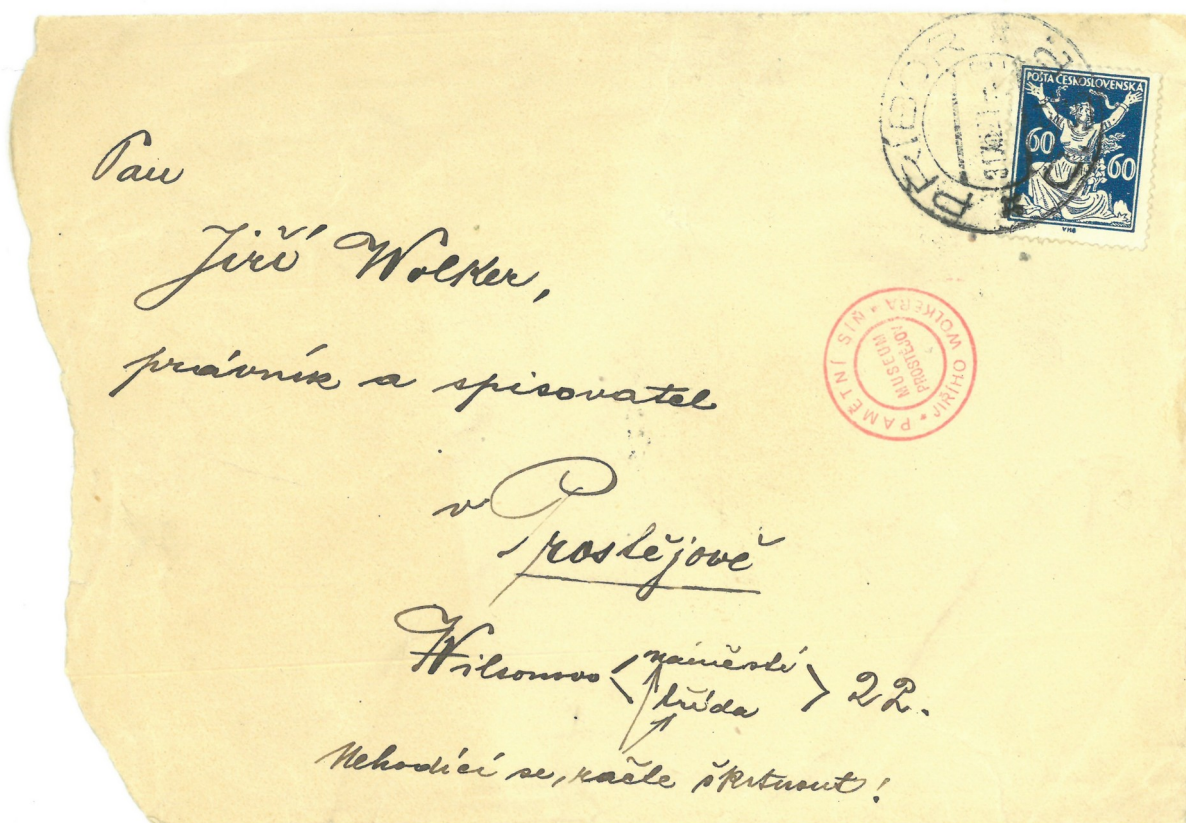 PŘÍBOR
POŠTA ČESKOSLOVENSKÁ
60 60
Pan
Jiří Wolker,
právník a spisovatel
PAMĚTNÍ SÍŇ JIŘÍHO WOLKERA
MUSEUM
PROSTĚJOV
v Prostějově
Wilsonovo < náměstí
třída > 22.
Nehodící se, račte škrtnout!